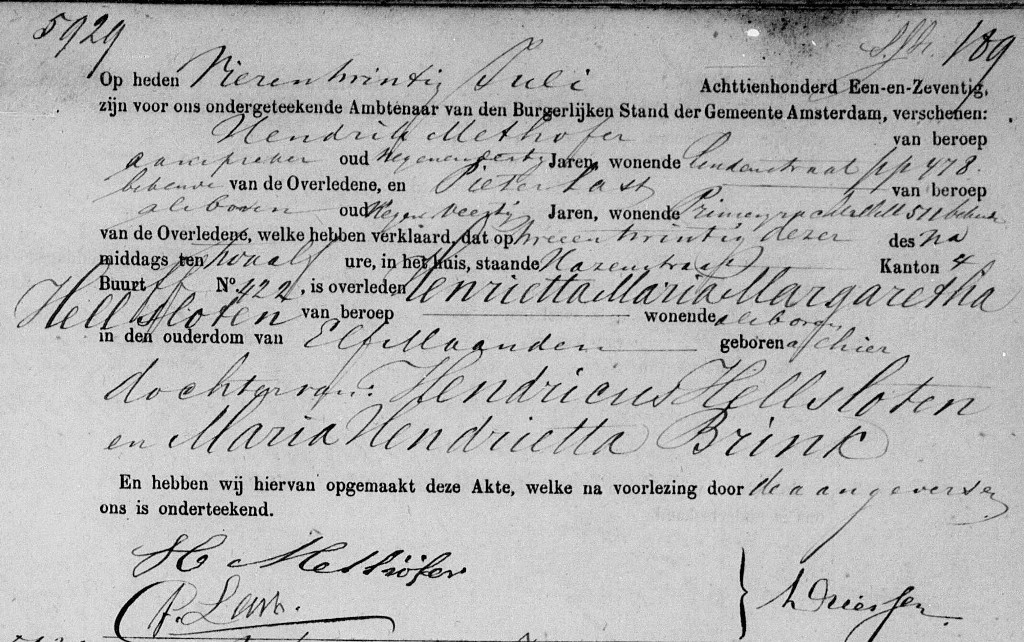 5929
189
Op heden Vierentwintig Juli Achttienhonderd Een-en-Zeventig,
zijn voor ons ondergeteekende Ambtenaar van den Burgerlijken Stand der Gemeente Amsterdam, verschenen:
Hendrik Methofer van beroep
aanspreker oud Negenendertig Jaren, wonende Lindenstraat pp 478
bekende van de Overledene, en Pieter Last van beroep
als boven oud Negen Veertig Jaren, wonende Prinsengracht 511 bekende
van de Overledene, welke hebben verklaard, dat op tweeentwintig dezer des na
middags ten twaalf ure, in het huis, staande Hazenstraat Kanton 4
Buurt ff No. 422, is overleden Henrietta Maria Margaretha
Hellsloten van beroep wonende als boven
in den ouderdom van Elf Maanden geboren alhier
dochter van: Hendricus Hellsloten
en Maria Hendrietta Brink
En hebben wij hiervan opgemaakt deze Akte, welke na voorlezing door de aangevers en
ons is onderteekend.
H Methöfer
P. Last.